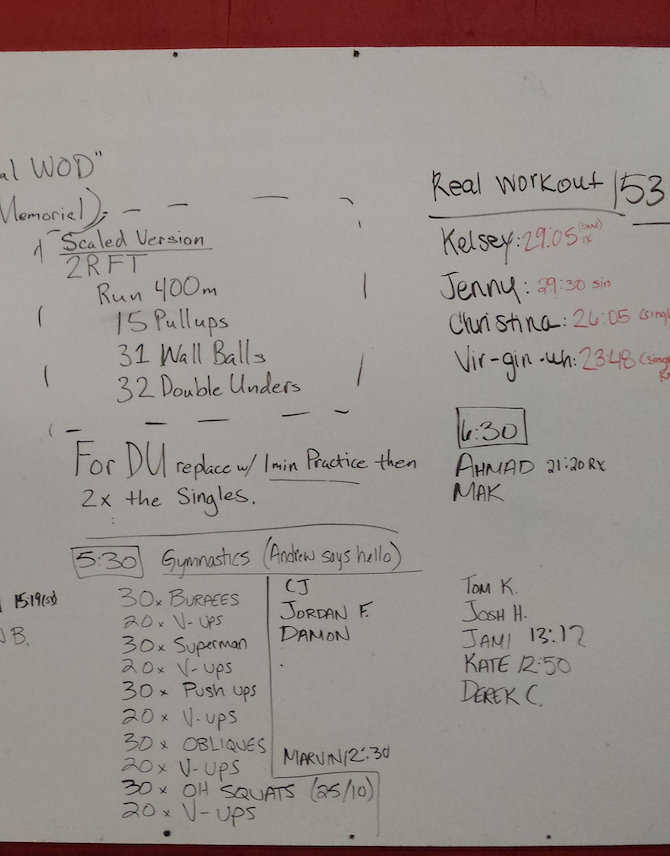 al WOD"
Memorial)
Scaled Version
2RFT
Run 400m
15 Pullups
31 Wall Balls
32 Double Unders
For DU replace w/ 1min Practice then
2x the Singles.
Real Workout 53
Kelsey: 29:05 (band) rx
Jenny: 29:30 sin
Christina: 26:05 (singl
Vir-gin-uh: 23:48 (singl
6:30
AHMAD 21:20 RX
MAK
5:30 Gymnastics (Andrew says hello)
15:19(si)
B.
30x BURPEES
20x V-ups
30x Superman
20x V-ups
30x Push ups
20x V-ups
30x OBLIQUES
20x V-ups
30x OH SQUATS (25/10)
20x V-ups
CJ
JORDAN F.
DAMON
MARVIN 12:30
TOM K.
JOSH H.
JAMI 13:17
KATE 12:50
DEREK C.